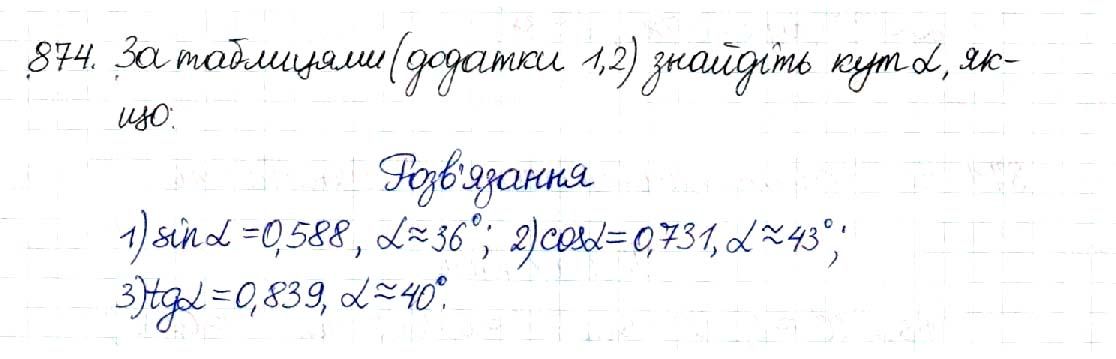 874. За таблицями (додатки 1,2) знайдіть кут α, як-
що:
Розв'язання
1) sin α = 0,588, α ≈ 36°; 2) cos α = 0,731, α ≈ 43°;
3) tg α = 0,839, α ≈ 40°.